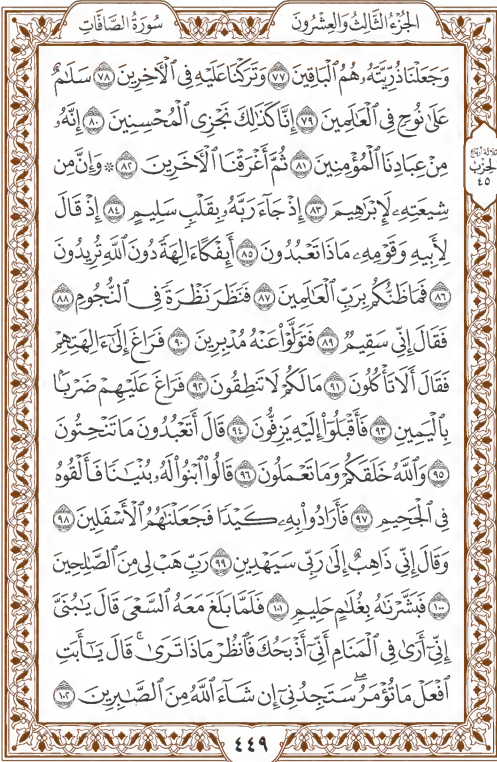 الجُزْءُ الثَّالِثُ وَالعِشْرُونَ سُورَةُ الصَّافَّاتِ
وَجَعَلْنَا ذُرِّيَّتَهُۥ هُمُ ٱلْبَاقِينَ ٧٧ وَتَرَكْنَا عَلَيْهِ فِى ٱلْأٓخِرِينَ ٧٨ سَلَٰمٌ
عَلَىٰ نُوحٍ فِى ٱلْعَٰلَمِينَ ٧٩ إِنَّا كَذَٰلِكَ نَجْزِى ٱلْمُحْسِنِينَ ٨٠ إِنَّهُۥ
مِنْ عِبَادِنَا ٱلْمُؤْمِنِينَ ٨١ ثُمَّ أَغْرَقْنَا ٱلْأٓخَرِينَ ٨٢ ۞ وَإِنَّ مِن
ثلاثة أرباع
الحزب
٤٥
شِيعَتِهِۦ لَإِبْرَٰهِيمَ ٨٣ إِذْ جَآءَ رَبَّهُۥ بِقَلْبٍ سَلِيمٍ ٨٤ إِذْ قَالَ
لِأَبِيهِ وَقَوْمِهِۦ مَاذَا تَعْبُدُونَ ٨٥ أَئِفْكًا ءَالِهَةً دُونَ ٱللَّهِ تُرِيدُونَ
٨٦ فَمَا ظَنُّكُم بِرَبِّ ٱلْعَٰلَمِينَ ٨٧ فَنَظَرَ نَظْرَةً فِى ٱلنُّجُومِ ٨٨
فَقَالَ إِنِّى سَقِيمٌ ٨٩ فَتَوَلَّوْا۟ عَنْهُ مُدْبِرِينَ ٩٠ فَرَاغَ إِلَىٰٓ ءَالِهَتِهِمْ
فَقَالَ أَلَا تَأْكُلُونَ ٩١ مَا لَكُمْ لَا تَنطِقُونَ ٩٢ فَرَاغَ عَلَيْهِمْ ضَرْبًۢا
بِٱلْيَمِينِ ٩٣ فَأَقْبَلُوٓا۟ إِلَيْهِ يَزِفُّونَ ٩٤ قَالَ أَتَعْبُدُونَ مَا تَنْحِتُونَ
٩٥ وَٱللَّهُ خَلَقَكُمْ وَمَا تَعْمَلُونَ ٩٦ قَالُوا۟ ٱبْنُوا۟ لَهُۥ بُنْيَٰنًا فَأَلْقُوهُ
فِى ٱلْجَحِيمِ ٩٧ فَأَرَادُوا۟ بِهِۦ كَيْدًا فَجَعَلْنَٰهُمُ ٱلْأَسْفَلِينَ ٩٨
وَقَالَ إِنِّى ذَاهِبٌ إِلَىٰ رَبِّى سَيَهْدِينِ ٩٩ رَبِّ هَبْ لِى مِنَ ٱلصَّٰلِحِينَ
١٠٠ فَبَشَّرْنَٰهُ بِغُلَٰمٍ حَلِيمٍ ١٠١ فَلَمَّا بَلَغَ مَعَهُ ٱلسَّعْىَ قَالَ يَٰبُنَىَّ
إِنِّىٓ أَرَىٰ فِى ٱلْمَنَامِ أَنِّىٓ أَذْبَحُكَ فَٱنظُرْ مَاذَا تَرَىٰ ۚ قَالَ يَٰٓأَبَتِ
ٱفْعَلْ مَا تُؤْمَرُ ۖ سَتَجِدُنِىٓ إِن شَآءَ ٱللَّهُ مِنَ ٱلصَّٰبِرِينَ ١٠٢
٤٤٩